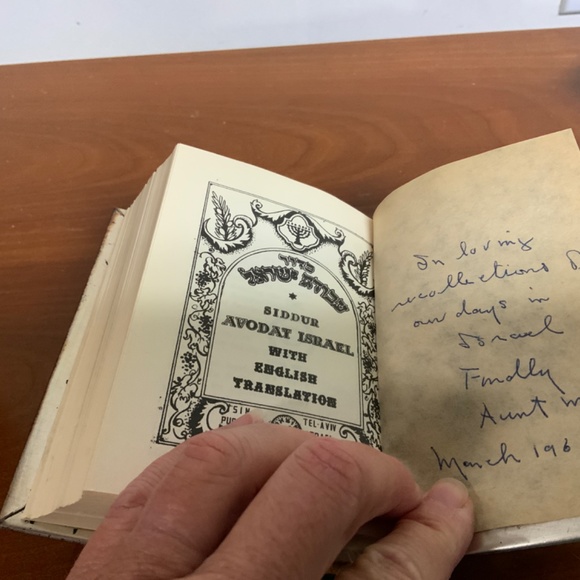 סדור
עבודת ישראל
SIDDUR
AVODAT ISRAEL
WITH
ENGLISH
TRANSLATION
TEL-AVIV
In loving
recollections
our days in
Israel
Fondly
Aunt
March 196